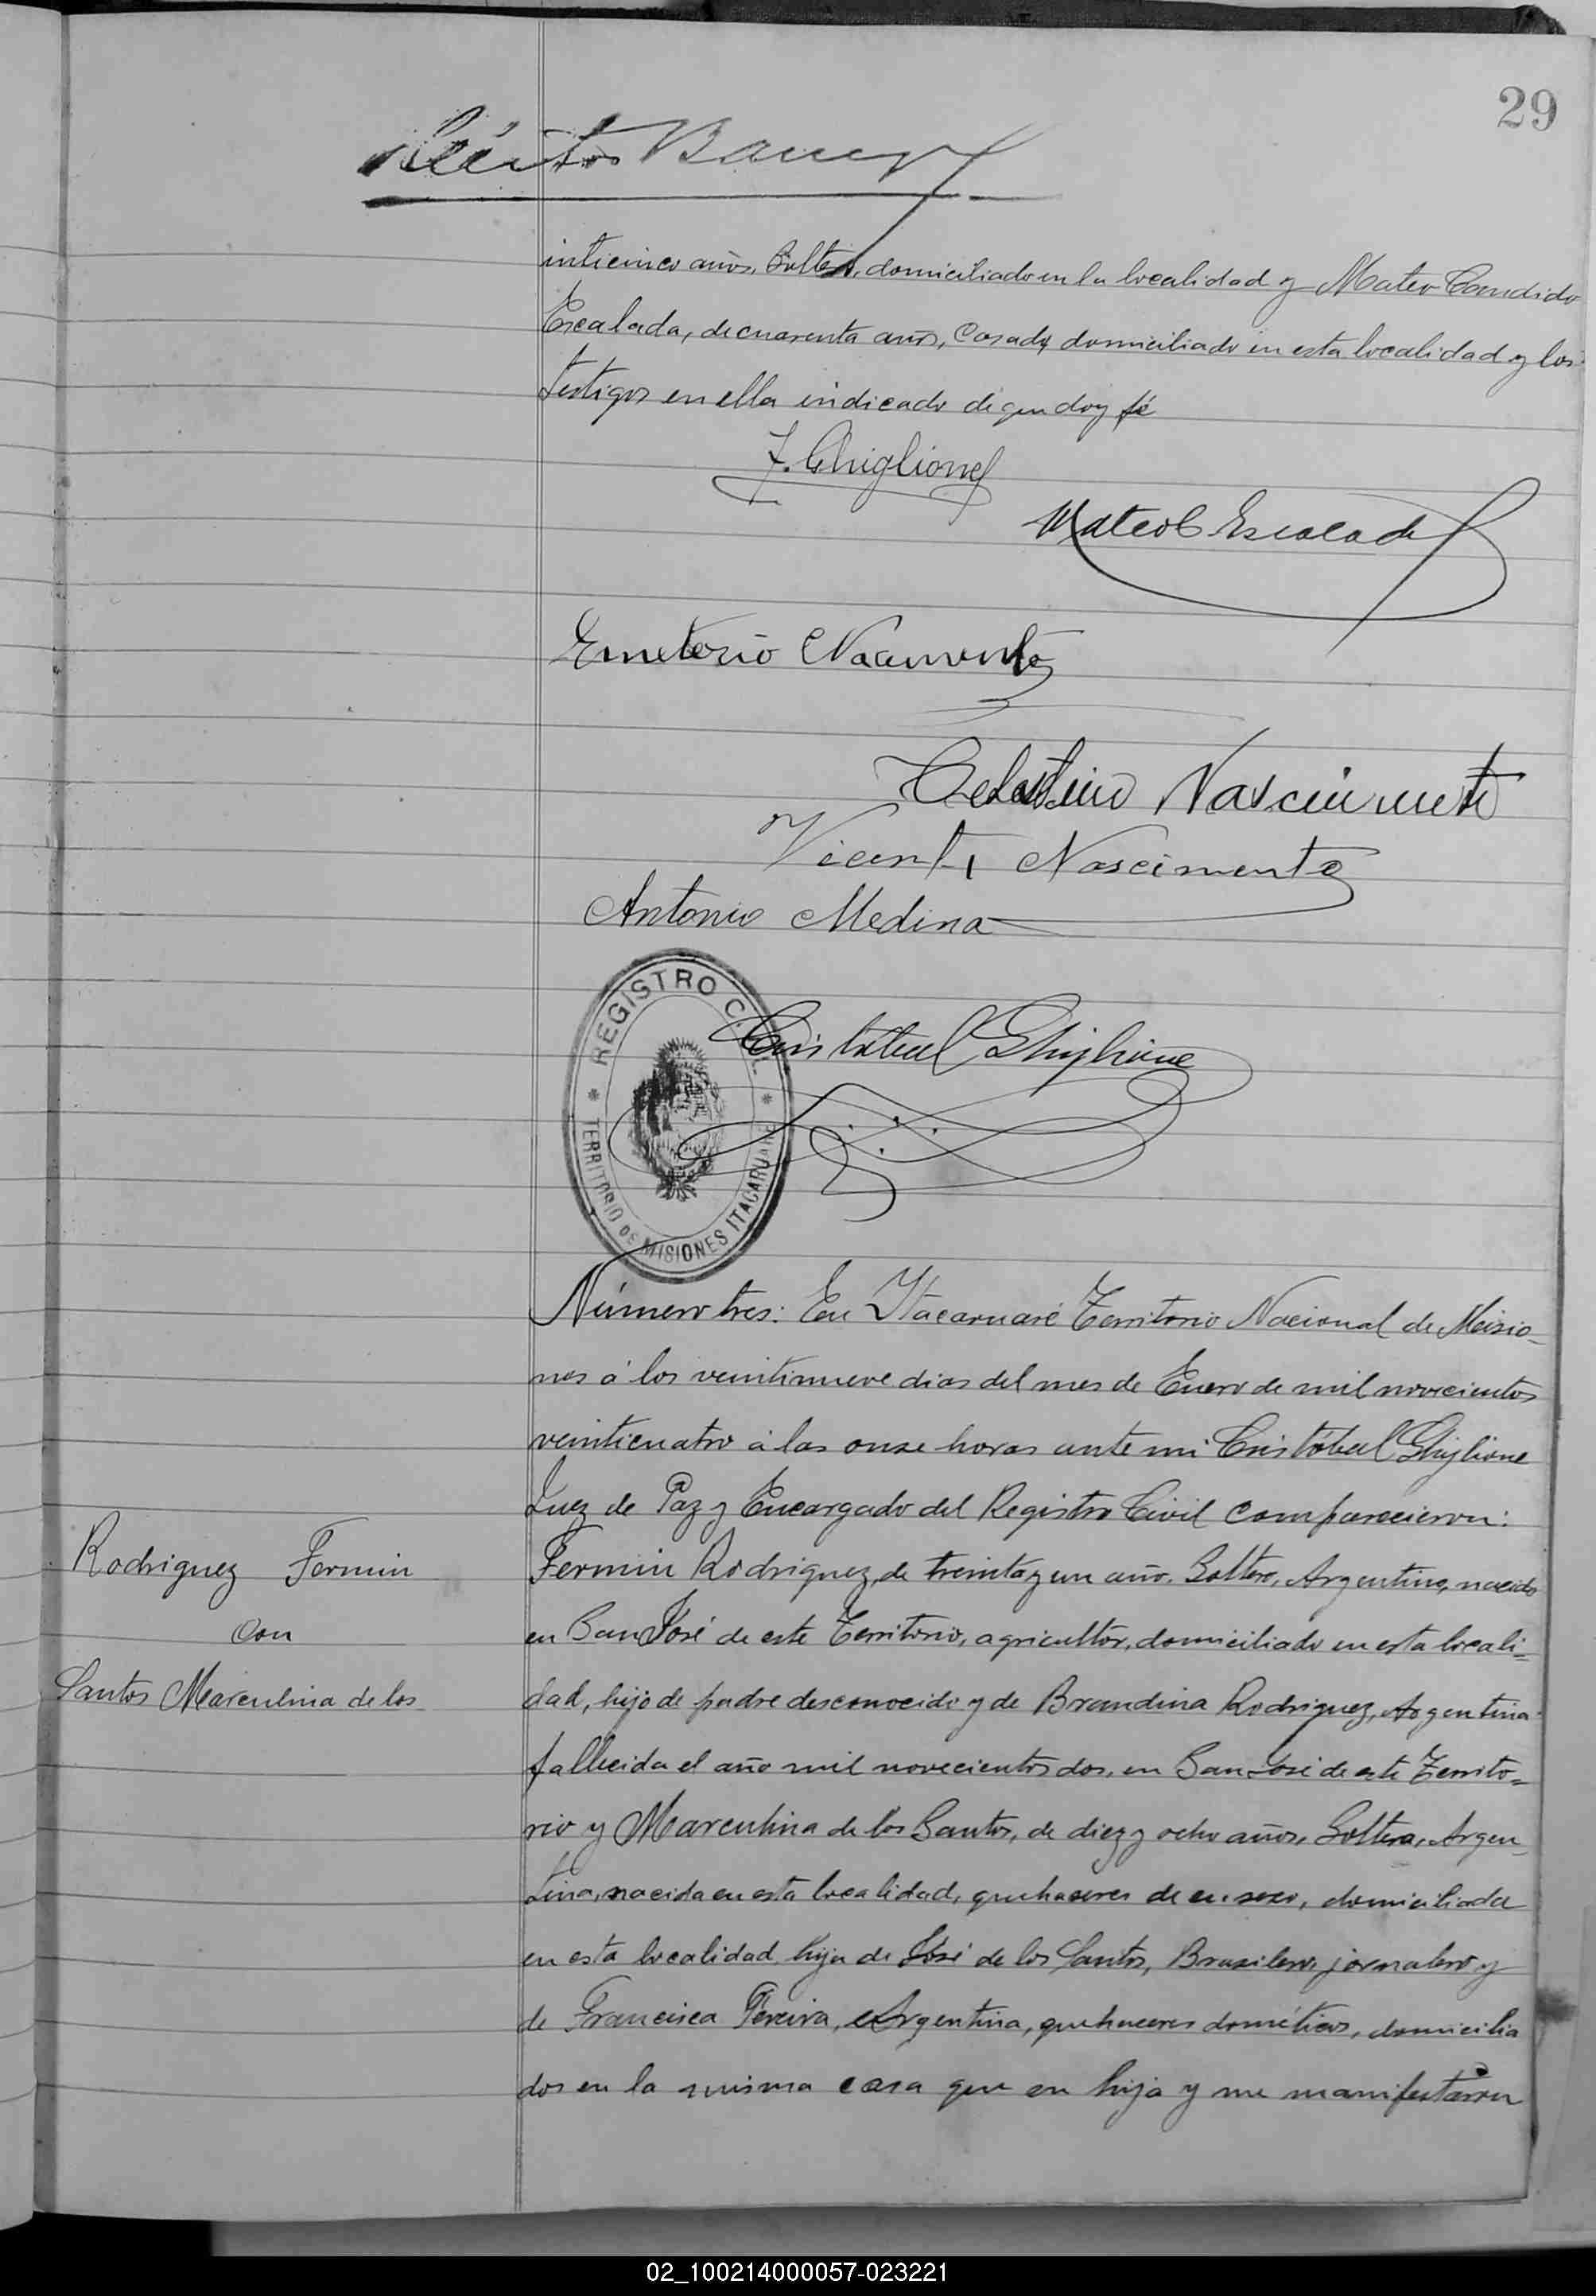 29
inticinco años, Soltero, domiciliado en la localidad y Mateo Candido
Escalada, de cuarenta años, Casado, domiciliado en esta localidad y los
testigos en ella indicado de que doy fé
F. Ghiglione
Mateo C Escalada
Emeterio Nacimento
Celestino Nascimento
Vicente Nascimento
Antonio Medina
REGISTRO CIVIL
TERRITORIO DE MISIONES ITACARUARE
Cristóbal Ghiglione
Número tres: En Itacaruaré Territorio Nacional de Misio-
nes á los veintinueve dias del mes de Enero de mil novecientos
veinticuatro á las onse horas ante mi Cristóbal Ghiglione
Juez de Paz y Encargado del Registro Civil comparecieron:
Rodriguez Fermin
con
Santos Marculina de los
Fermin Rodriguez, de treinta y un año. Soltero, Argentino, nacido
en San José de este Territorio, agricultor, domiciliado en esta locali=
dad, hijo de padre desconocido y de Brandina Rodriguez, Argentina
fallecida el año mil novecientos dos, en San José de este Territo=
rio y Marculina de los Santos, de diez y ocho años, Soltera, Argen-
tina, nacida en esta localidad, quehaseres de su sexo, domiciliada
en esta localidad hija de José de los Santos, Brasilero, jornalero y
de Francisca Pereira, Argentina, quehaceres dométicos, domicilia
dos en la misma casa que su hija y me manifestaron
02_100214000057-023221